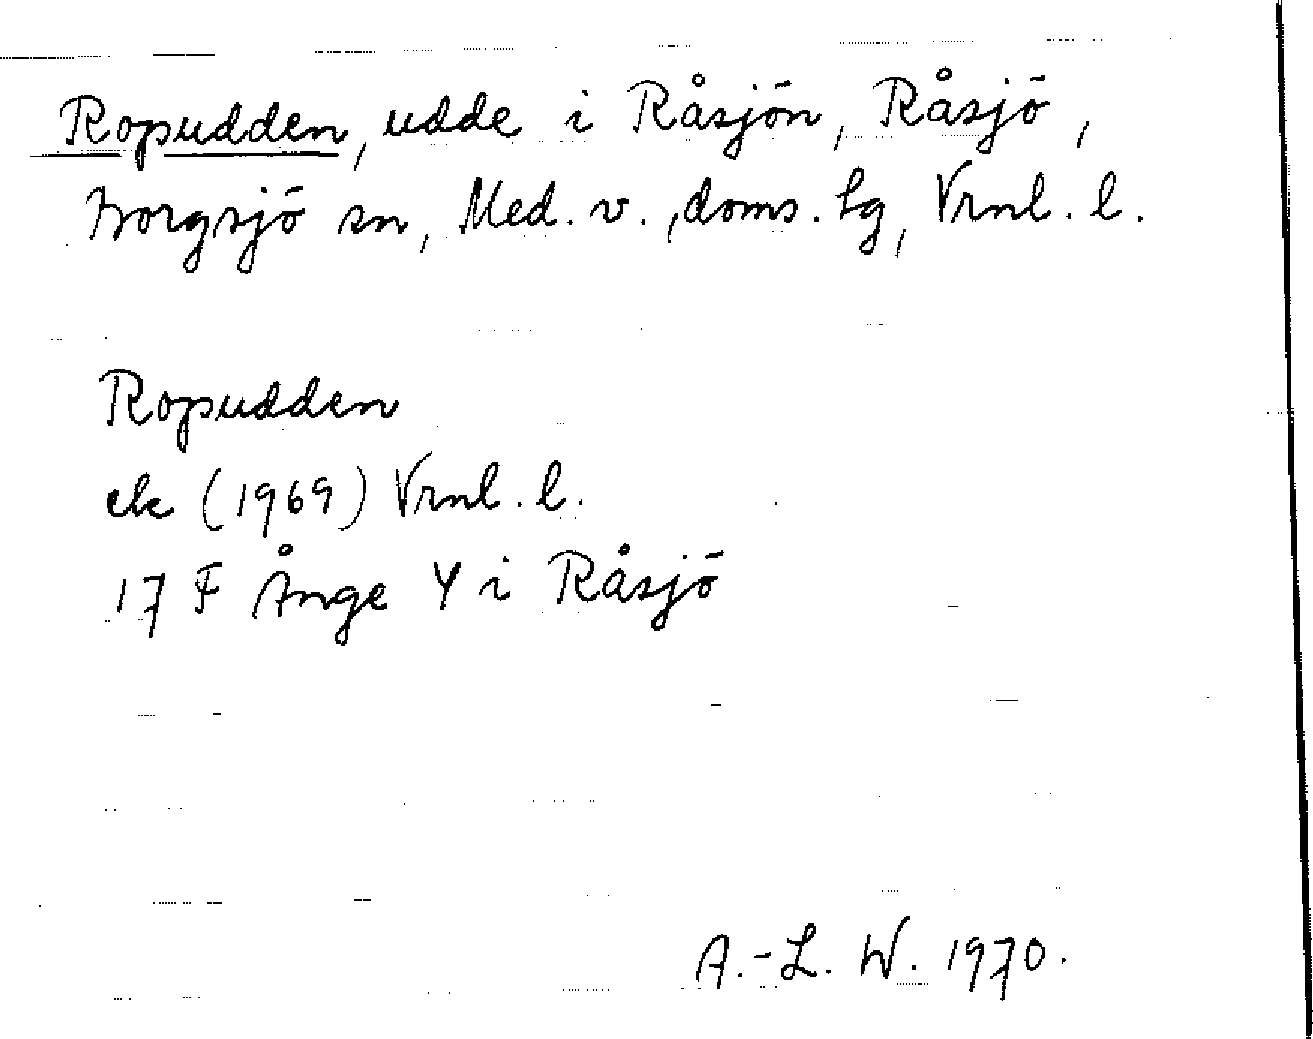 Ropudden, udde i Råsjön, Råsjö,
Borgsjö sn, Med. v., doms. lg, Vrnl. l.
Ropudden
ek (1969) Vrnl. l.
17 F Ånge Y i Råsjö
A.-L. W. 1970.